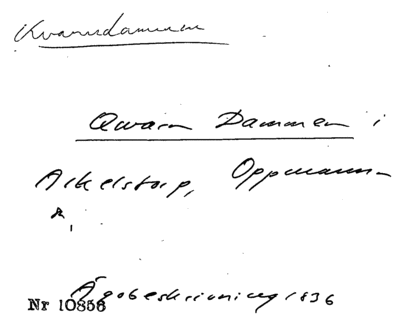 Kvarndammen
Qvarn Dammen i
Arkelstorp, Oppmanna
s,
Ägobeskrivning 1836
Nr 10858